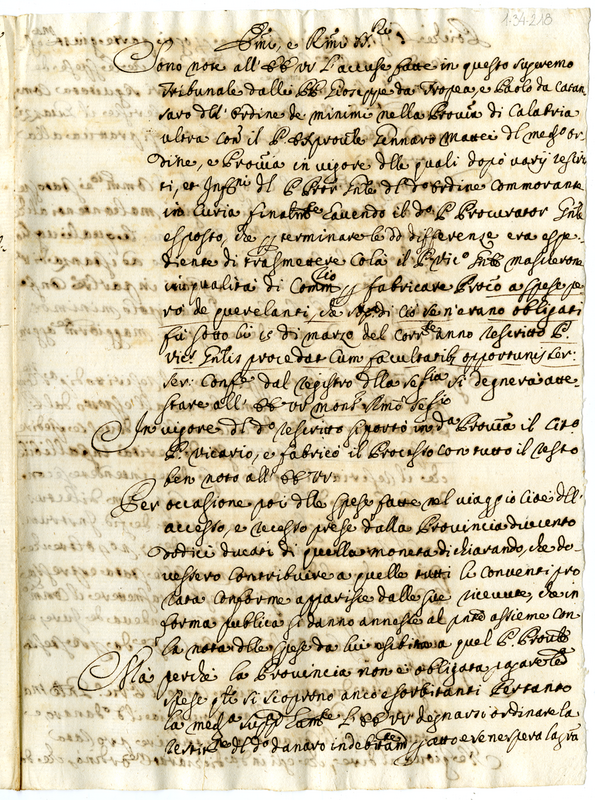 1-34-218
Em̃i, e Rm̃i SS.ri
Sono note all' EE VV l'accuse fatte in questo supremo
Tribunale dalli PP Gioseppe da Tropea, e Paolo da Catan
zaro dell' ordine de minimi nella Provin.a di Calabria
ultra con il P. Exprovle Gennaro Mattei del med.o or
dine, e Provin.a in vigore delle quali dopo varij rescrit
ti, et del P. Pror Gnle del d.o ordine commorante
in Curia finalm.te havendo il d.o P. Procurator Gnle
esposto, che p terminare le d.e differenze era espe
diente di trasmettere colà il P. Vic.o
in qualità di Comm.rio p fabricare Proc.o a spese pe
rò de querelanti, che di ciò se n'erano obligati
fù sotto li 15 di marzo del corr.te anno rescritto P.
Vic.s Gnlis procedat cum facultatib. opportunis
conf.e dal registro della si degnerà atte
stare all' EE VV mons.
In vigore del d.o rescritto si portò in d.a Provin.a il cito
P. Vicario, e fabricò il Processo con tutto il resto
ben noto all' EE VV
Per occasione poi delle spese fatte nel viaggio cioè dell'
accesso, e recesso prese dalla Provincia ducento
dodici ducati di quella moneta dichiarando, che do
vessero contribuire a quelle tutti li conventi pro
rata conforme apparisce dalle sue ricevute, che in
forma publica si danno annesse al assieme con
la nota delle spese da lui esibita a quel P. Provle
Mà perche la Provincia non è obligata pagare tali
spese q.li si scoprono anco esorbitanti Pertanto
la med.a supp.a l'EE VV degnarsi ordinare la
restit.ne del d.o danaro indebitam.te